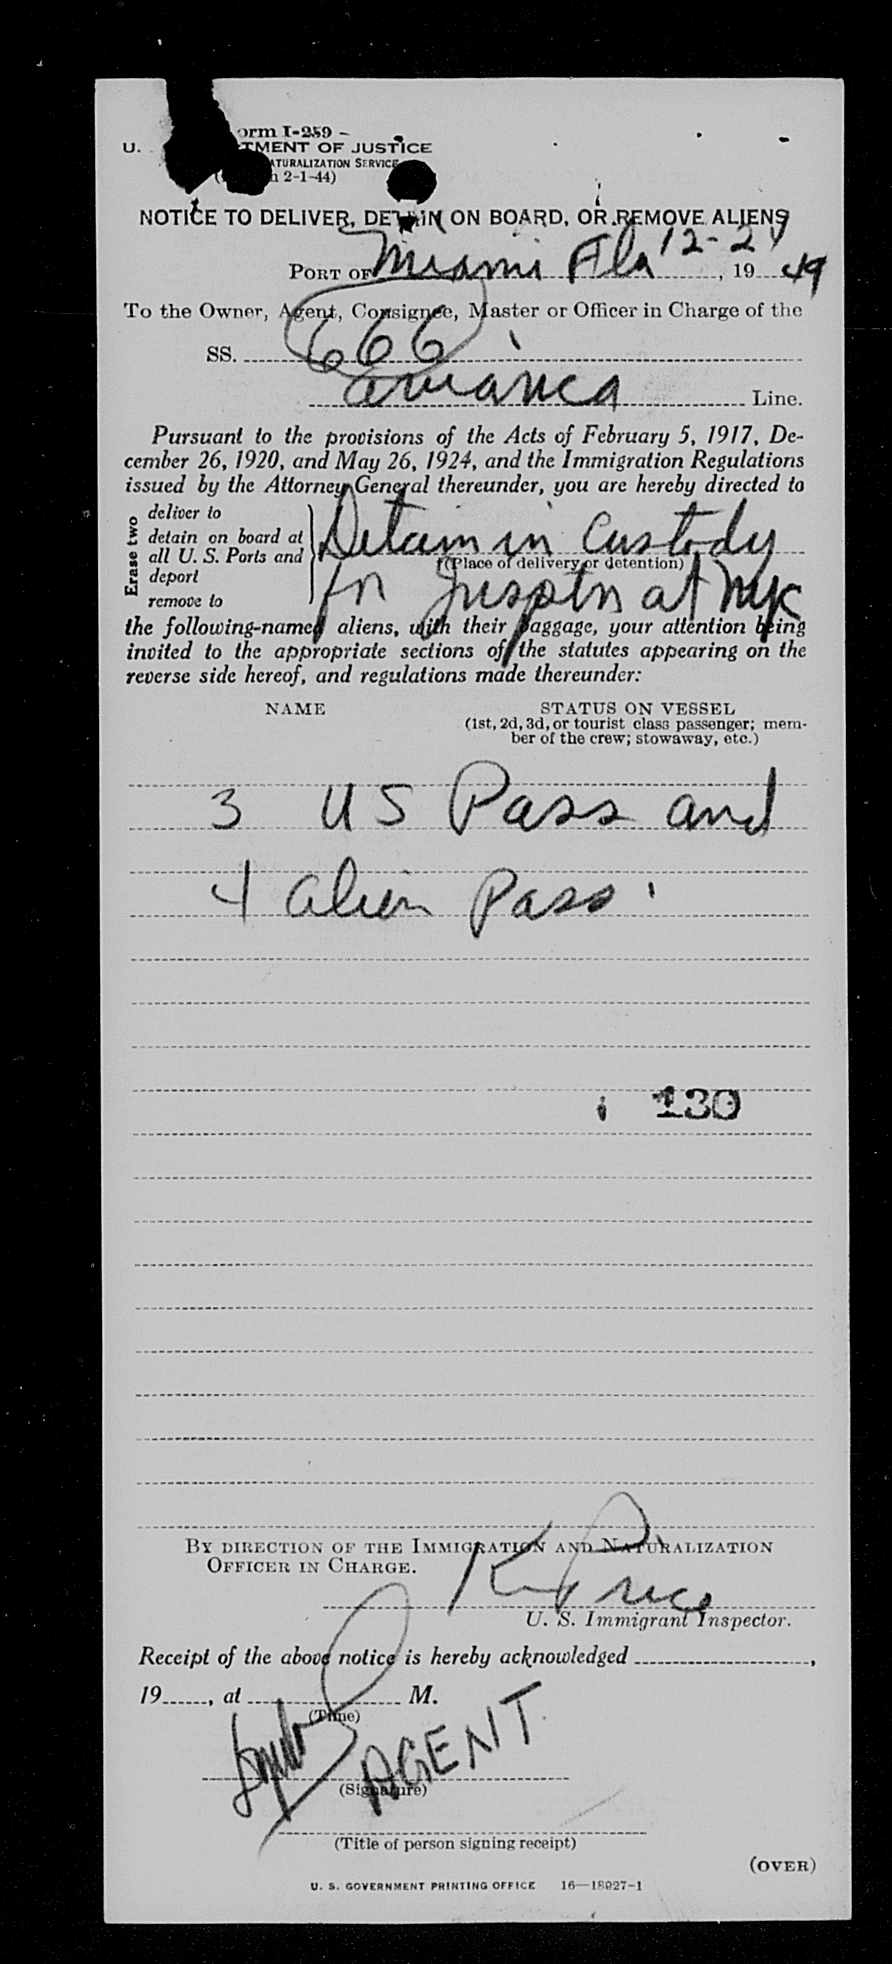 orm I-259
U. TMENT OF JUSTICE
ATURALIZATION SERVICE
2-1-44)
NOTICE TO DELIVER, DETAIN ON BOARD, OR REMOVE ALIENS
PORT OF Miami Fla 12-24, 1949
To the Owner, Agent, Consignee, Master or Officer in Charge of the
SS. 666
avianca Line.
Pursuant to the provisions of the Acts of February 5, 1917, De-
cember 26, 1920, and May 26, 1924, and the Immigration Regulations
issued by the Attorney General thereunder, you are hereby directed to
Erase two
deliver to
detain on board at
all U. S. Ports and
deport
remove to
Detain in Custody
(Place of delivery or detention)
for Insptn at NYC
the following-named aliens, with their baggage, your attention being
invited to the appropriate sections of the statutes appearing on the
reverse side hereof, and regulations made thereunder:
NAME
STATUS ON VESSEL
(1st, 2d, 3d, or tourist class passenger; mem-
ber of the crew; stowaway, etc.)
3 US Pass and
4 alien Pass.
130
BY DIRECTION OF THE IMMIGRATION AND NATURALIZATION
OFFICER IN CHARGE.
U. S. Immigrant Inspector.
Receipt of the above notice is hereby acknowledged ,
19 , at M.
(Time)
AGENT
(Signature)
(Title of person signing receipt)
(OVER)
U. S. GOVERNMENT PRINTING OFFICE 16—18927-1